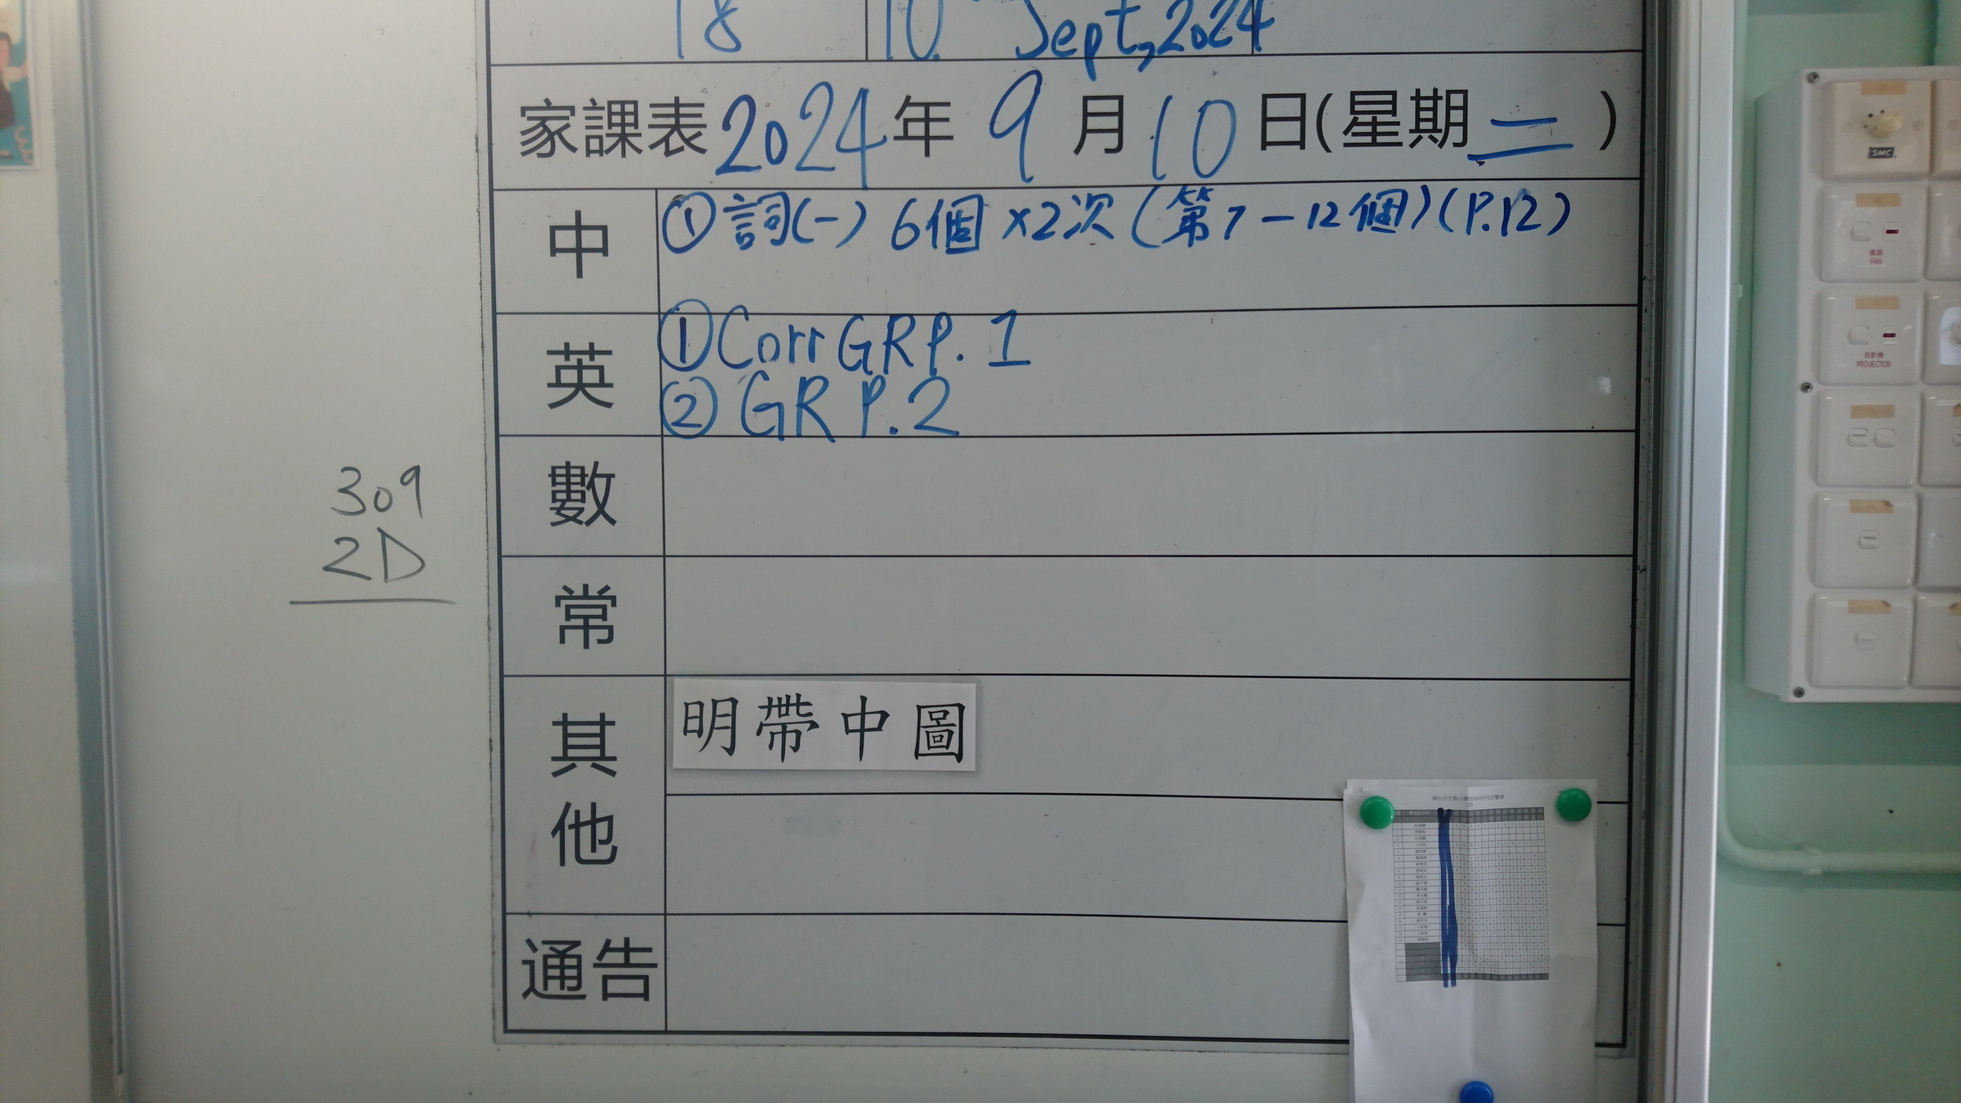 18 10 Sept, 2024
家課表 2024年 9月10日(星期二)
中 ① 詞(一) 6個 ×2次 (第7－12個) (P.12)
英 ① Corr GR P. 1
② GR P.2
數
309
2D
常
其他 明帶中圖
通告
SMC
風扇
FAN
投影機
PROJECTOR